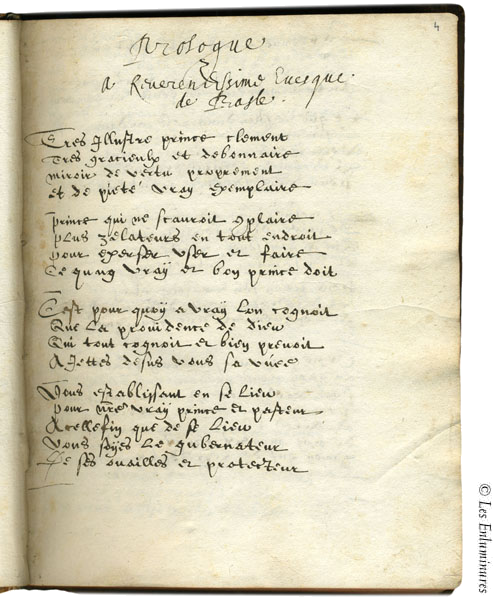 4
Prologue
A Reverendissime Evesque
de Basle.
Tres illustre prince clement
Tres gracieulx et debonnaire
miroir de vertu proprement
et de pieté vray exemplaire
Prince qui ne scauroit 9plaire
Plus zelateurs en tout endroit
Pour exerser user et faire
Ce qung vray et bon prince doit
Cest pour quoy a vray lon cognoit
Que la providence de dieu
Qui tout cognoit et bien prevoit
A jettes desus vous sa vuee
Vous establissant en se lieu
Pour nre vray prince et pasteur
Acellefin que de se lieu
Vous soyes le gubernateur
De ses ouailles et protecteur
© Les Enluminures